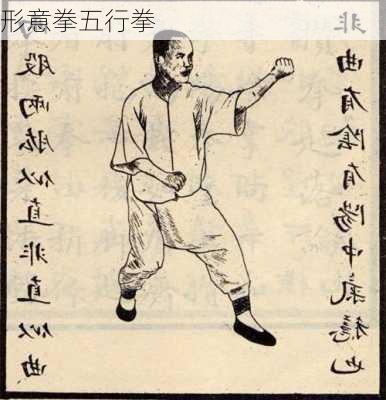 形意拳五行拳
股兩肱似直非直似曲
非曲有陰有陽中氣穩也